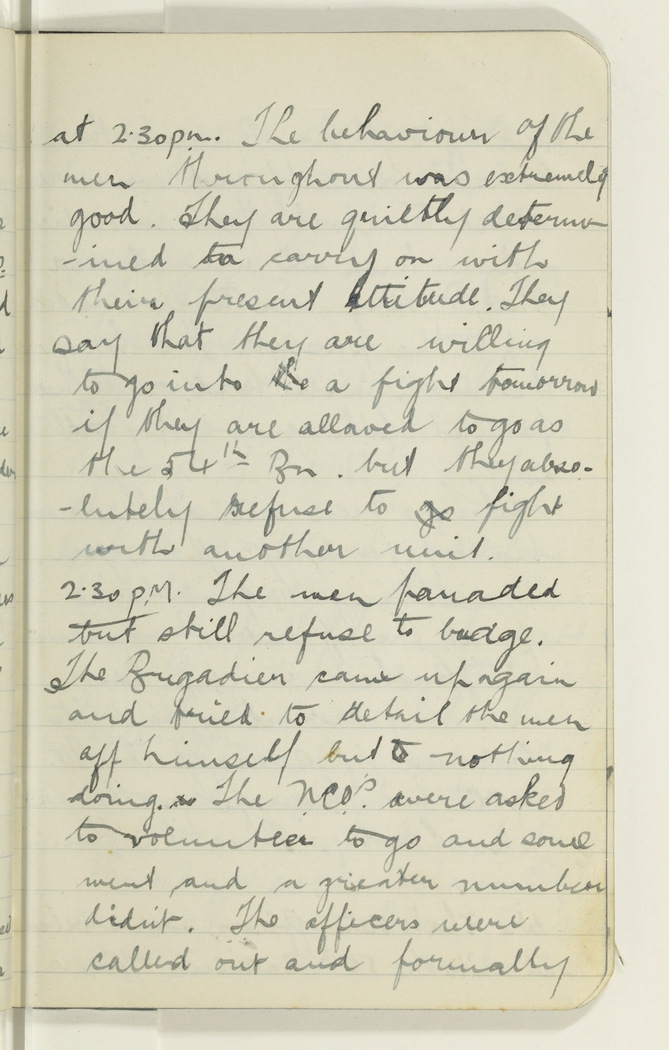 at 2.30pm. The behaviour of the
men throughout was extremely
good. They are quietly determ-
-ined to carry on with
their present attitude. They
say that they are willing
to go into the a fight tomorrow
if they are allowed to go as
the 54th Bn. but they abso-
-lutely refuse to go fight
with another unit.
2.30 p.M. The men paraded
but still refuse to budge.
The Brigadier came up again
and tried to detail the men
off himself but nothing
doing. The NCOs. were asked
to volunteer to go and some
went and a greater number
didn't. The officers were
called out and formally